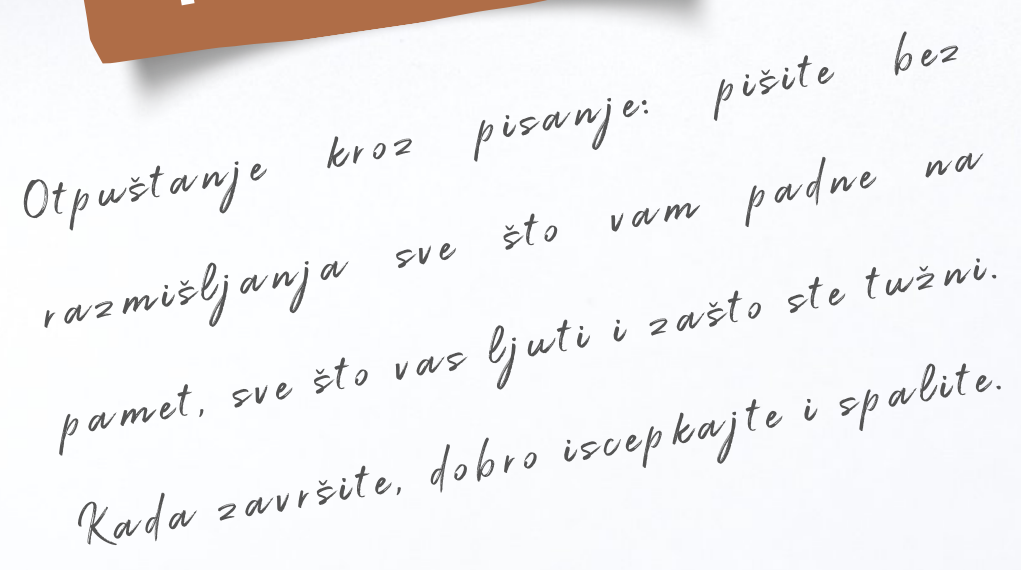 Otpuštanje kroz pisanje: pišite bez
razmišljanja sve što vam padne na
pamet, sve što vas ljuti i zašto ste tužni.
Kada završite, dobro iscepkajte i spalite.